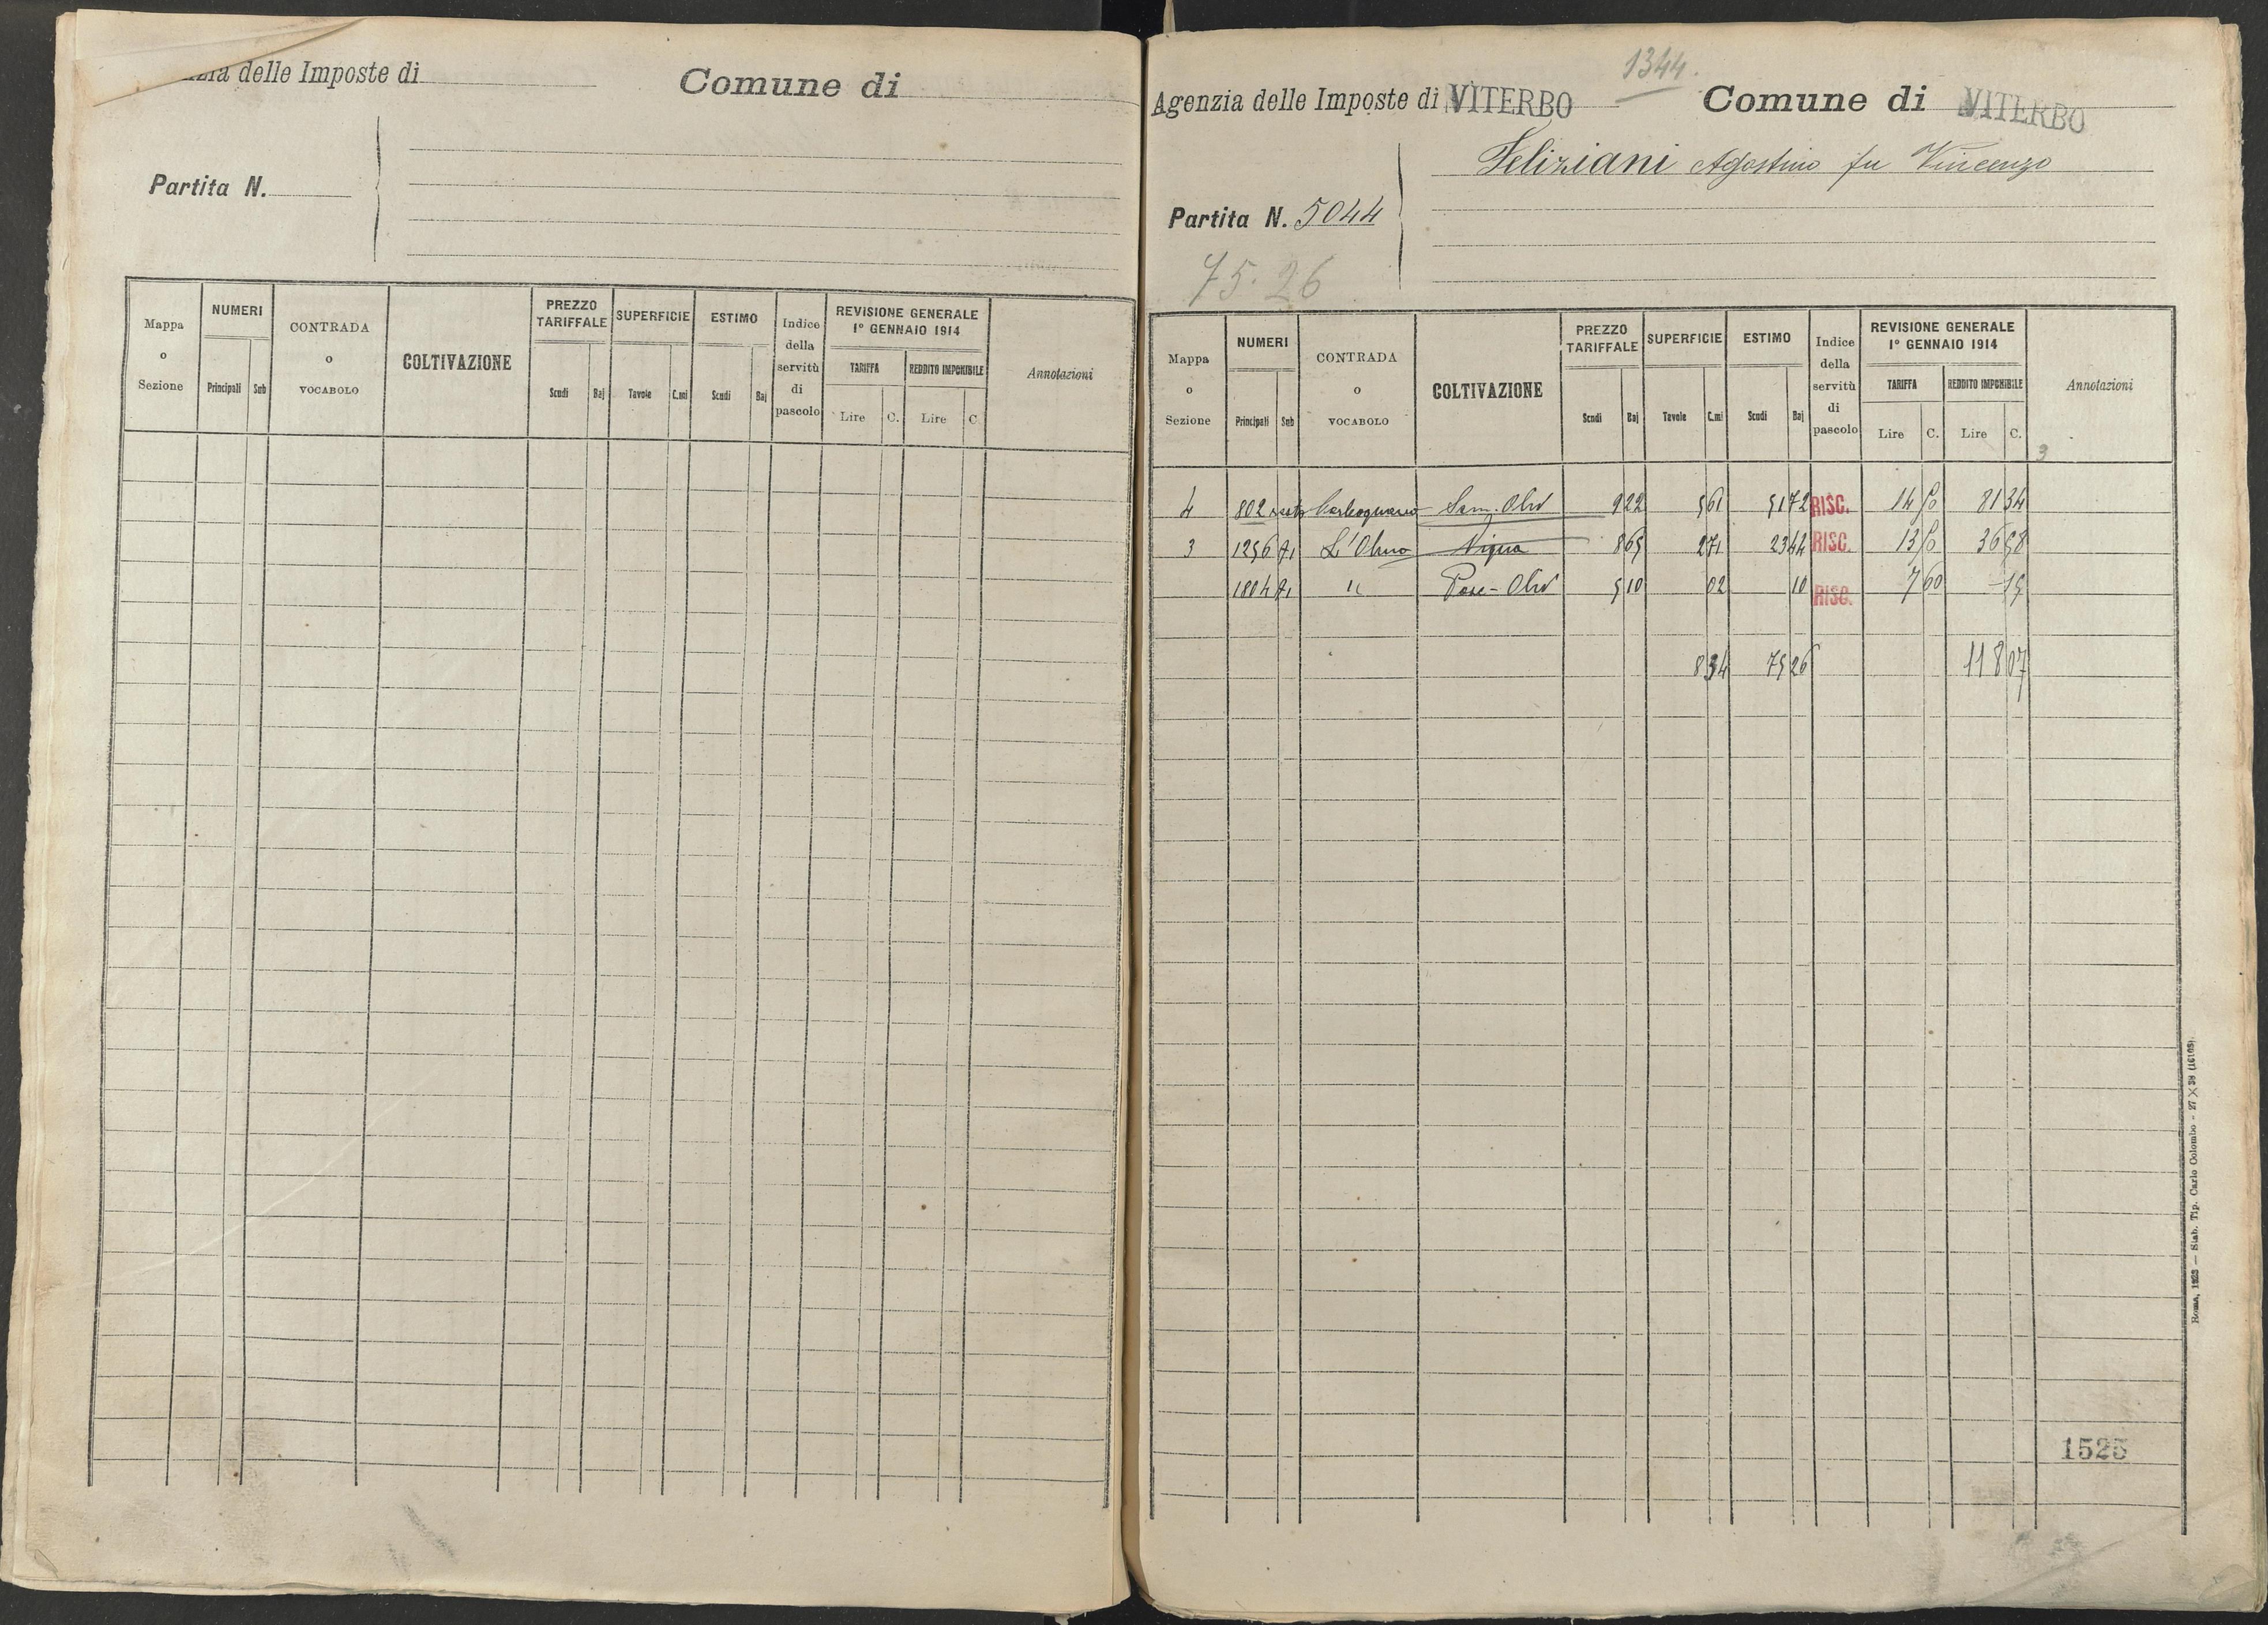 delle Imposte di
Comune di
Partita N.
Mappa o Sezione
NUMERI
Principali Sub
CONTRADA o VOCABOLO
COLTIVAZIONE
PREZZO TARIFFALE
Scudi Baj
SUPERFICIE
Tavole C.mi
ESTIMO
Scudi Baj
Indice della servitù di pascolo
REVISIONE GENERALE 1° GENNAIO 1914
TARIFFA
Lire C.
REDDITO IMPONIBILE
Lire C
Annotazioni
1344.
Agenzia delle Imposte di VITERBO
Comune di VITERBO
Feliziani Agostino fu Vincenzo
Partita N. 5044
75.26
Mappa o Sezione
NUMERI
Principali Sub
CONTRADA o VOCABOLO
COLTIVAZIONE
PREZZO TARIFFALE
Scudi Baj
SUPERFICIE
Tavole C.mi
ESTIMO
Scudi Baj
Indice della servitù di pascolo
REVISIONE GENERALE 1° GENNAIO 1914
TARIFFA
Lire C.
REDDITO IMPONIBILE
Lire C.
Annotazioni
3
4 802 Sem. Oliv 9 22 5 61 51 72 RISC. 14 50 81 34
3 1256 L'Olmo Vigna 8 65 2 71 23 44 RISC. 13 50 36 58
1804 " Pasc-Oliv 5 10 02 10 RISC. 7 60 -15
8 34 75 26 118 07
Roma, 1923 — Stab. Tip. Carlo Colombo - 27 × 38 (16105)
1525